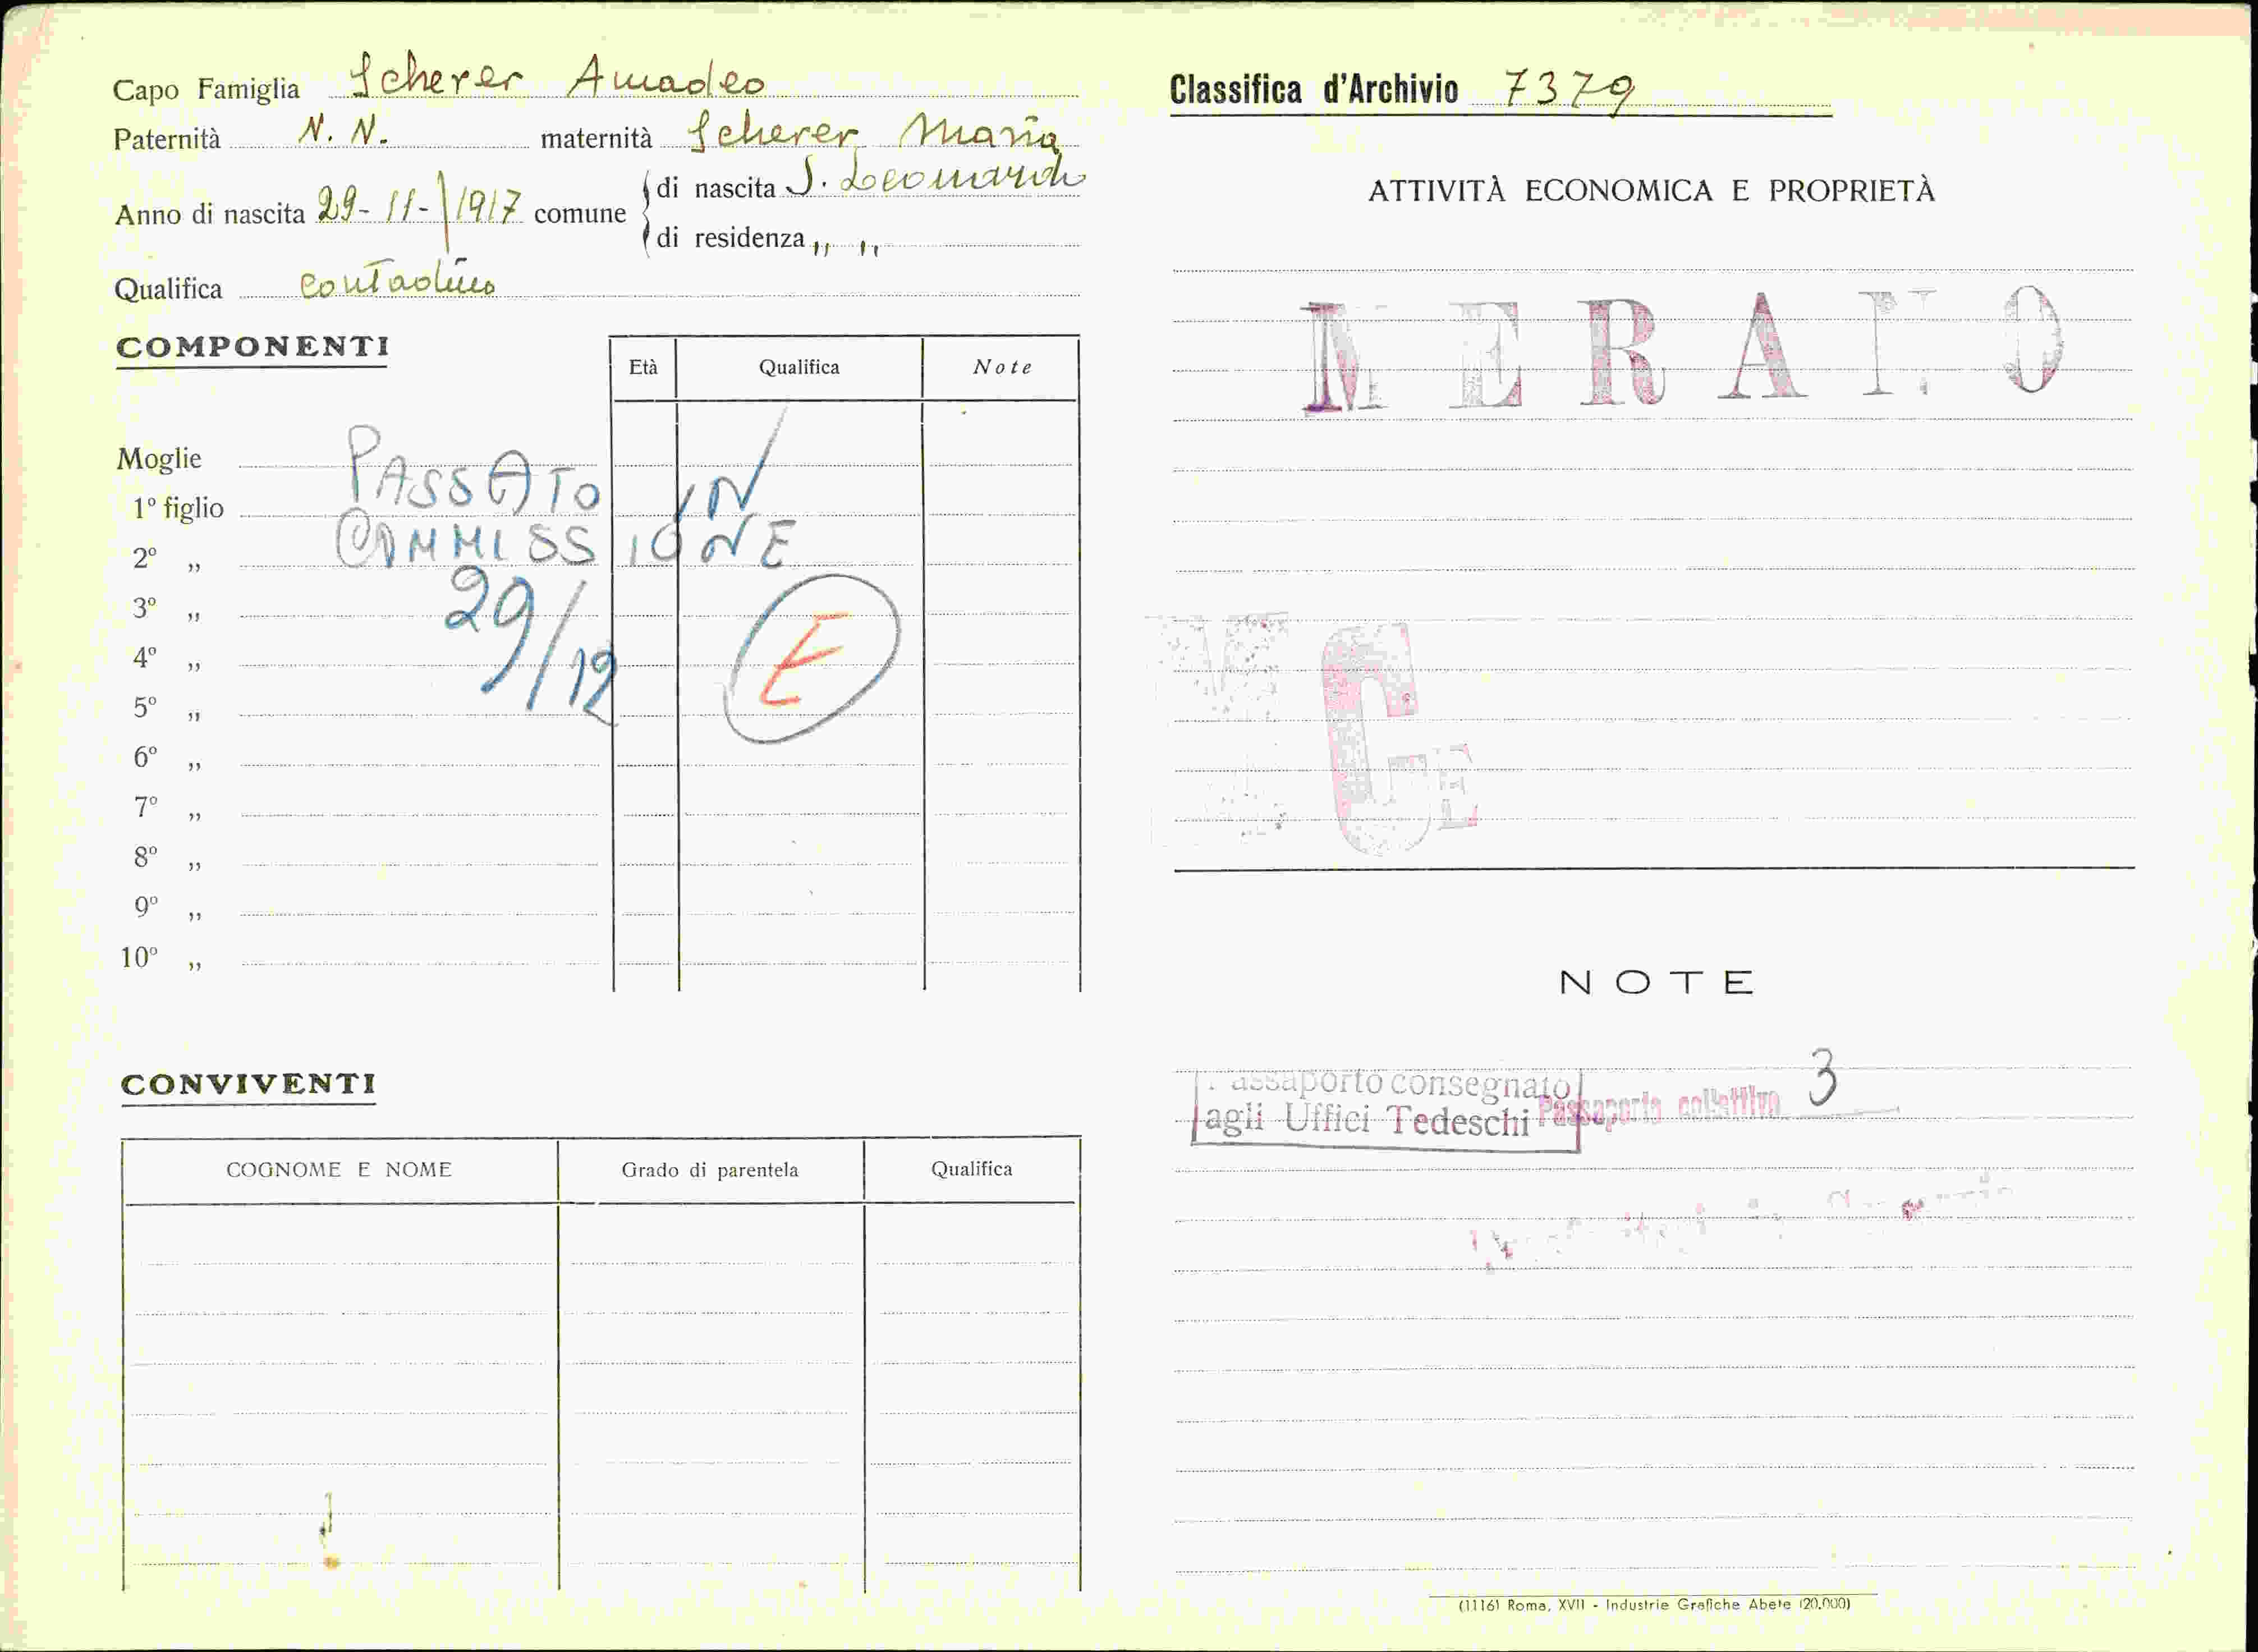 Capo Famiglia Scherer Amadeo
Paternità N. N. maternità Scherer Maria
Anno di nascita 29-11-1917 comune
di nascita S. Leonardo
di residenza ,, ,,
Qualifica contadino
COMPONENTI
Età Qualifica Note
Moglie
1º figlio
2º ,,
3º ,,
4º ,,
5º ,,
6º ,,
7º ,,
8º ,,
9º ,,
10º ,,
PASSATO IN
COMMISSIONE
29/12
E
CONVIVENTI
COGNOME E NOME Grado di parentela Qualifica
Classifica d'Archivio 7379
ATTIVITÀ ECONOMICA E PROPRIETÀ
MERANO
NOTE
Passaporto consegnato
agli Uffici Tedeschi
Passaporto collettivo 3
(11161 Roma, XVII - Industrie Grafiche Abete (20.000)